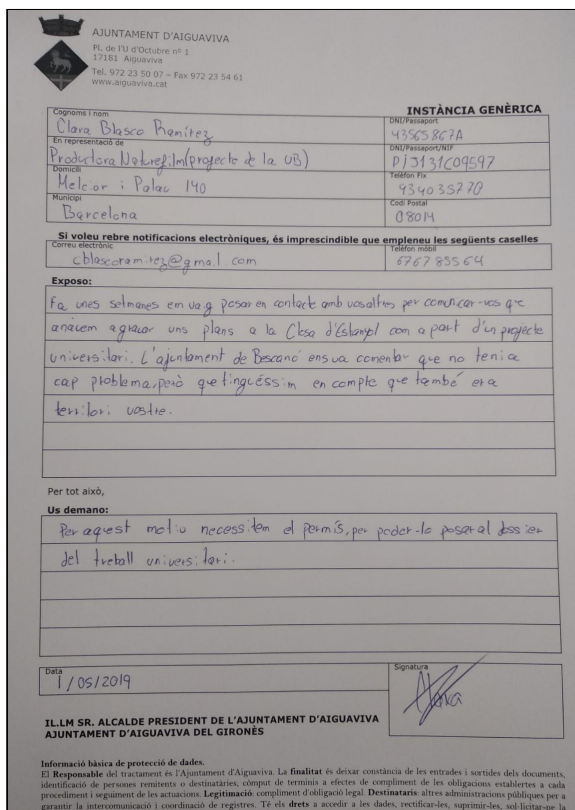 AJUNTAMENT D'AIGUAVIVA
Pl. de l'U d'Octubre nº 1
17181 Aiguaviva
Tel. 972 23 50 07 – Fax 972 23 54 61
www.aiguaviva.cat
INSTÀNCIA GENÈRICA
Cognoms i nom
Clara Blasco Ramírez
DNI/Passaport
43565867A
En representació de
Productora Naturefilm (projecte de la UB)
DNI/Passaport/NIF
Domicili
Melcior i Palau 140
Telèfon Fix
934035770
Municipi
Barcelona
Codi Postal
08014
Si voleu rebre notificacions electròniques, és imprescindible que empleneu les següents caselles
Correu electrònic
cblascoramirez@gmail.com
Telèfon mòbil
676785564
Exposo:
Fa unes setmanes em vaig posar en contacte amb vosaltres per comunicar-vos que
anàvem a gravar uns plans a la Closa d'Estanyol com a part d'un projecte
universitari. L'ajuntament de Bescanó ens va comentar que no tenia
cap problema, però que tinguéssim en compte que també era
territori vostre.
Per tot això,
Us demano:
Per aquest motiu necessitem el permís, per poder-lo posar al dossier
del treball universitari.
Data
1/05/2019
Signatura
IL.LM SR. ALCALDE PRESIDENT DE L'AJUNTAMENT D'AIGUAVIVA
AJUNTAMENT D'AIGUAVIVA DEL GIRONÈS
Informació bàsica de protecció de dades.
El Responsable del tractament és l'Ajuntament d'Aiguaviva. La finalitat és deixar constància de les entrades i sortides dels documents,
identificació de persones remitents o destinatàries, còmput de terminis a efectes de compliment de les obligacions establertes a cada
procediment i seguiment de les actuacions. Legitimació: compliment d'obligació legal. Destinataris: altres administracions públiques per a
garantir la intercomunicació i coordinació de registres. Té els drets a accedir a les dades, rectificar-les, suprimir-les, sol·licitar-ne la